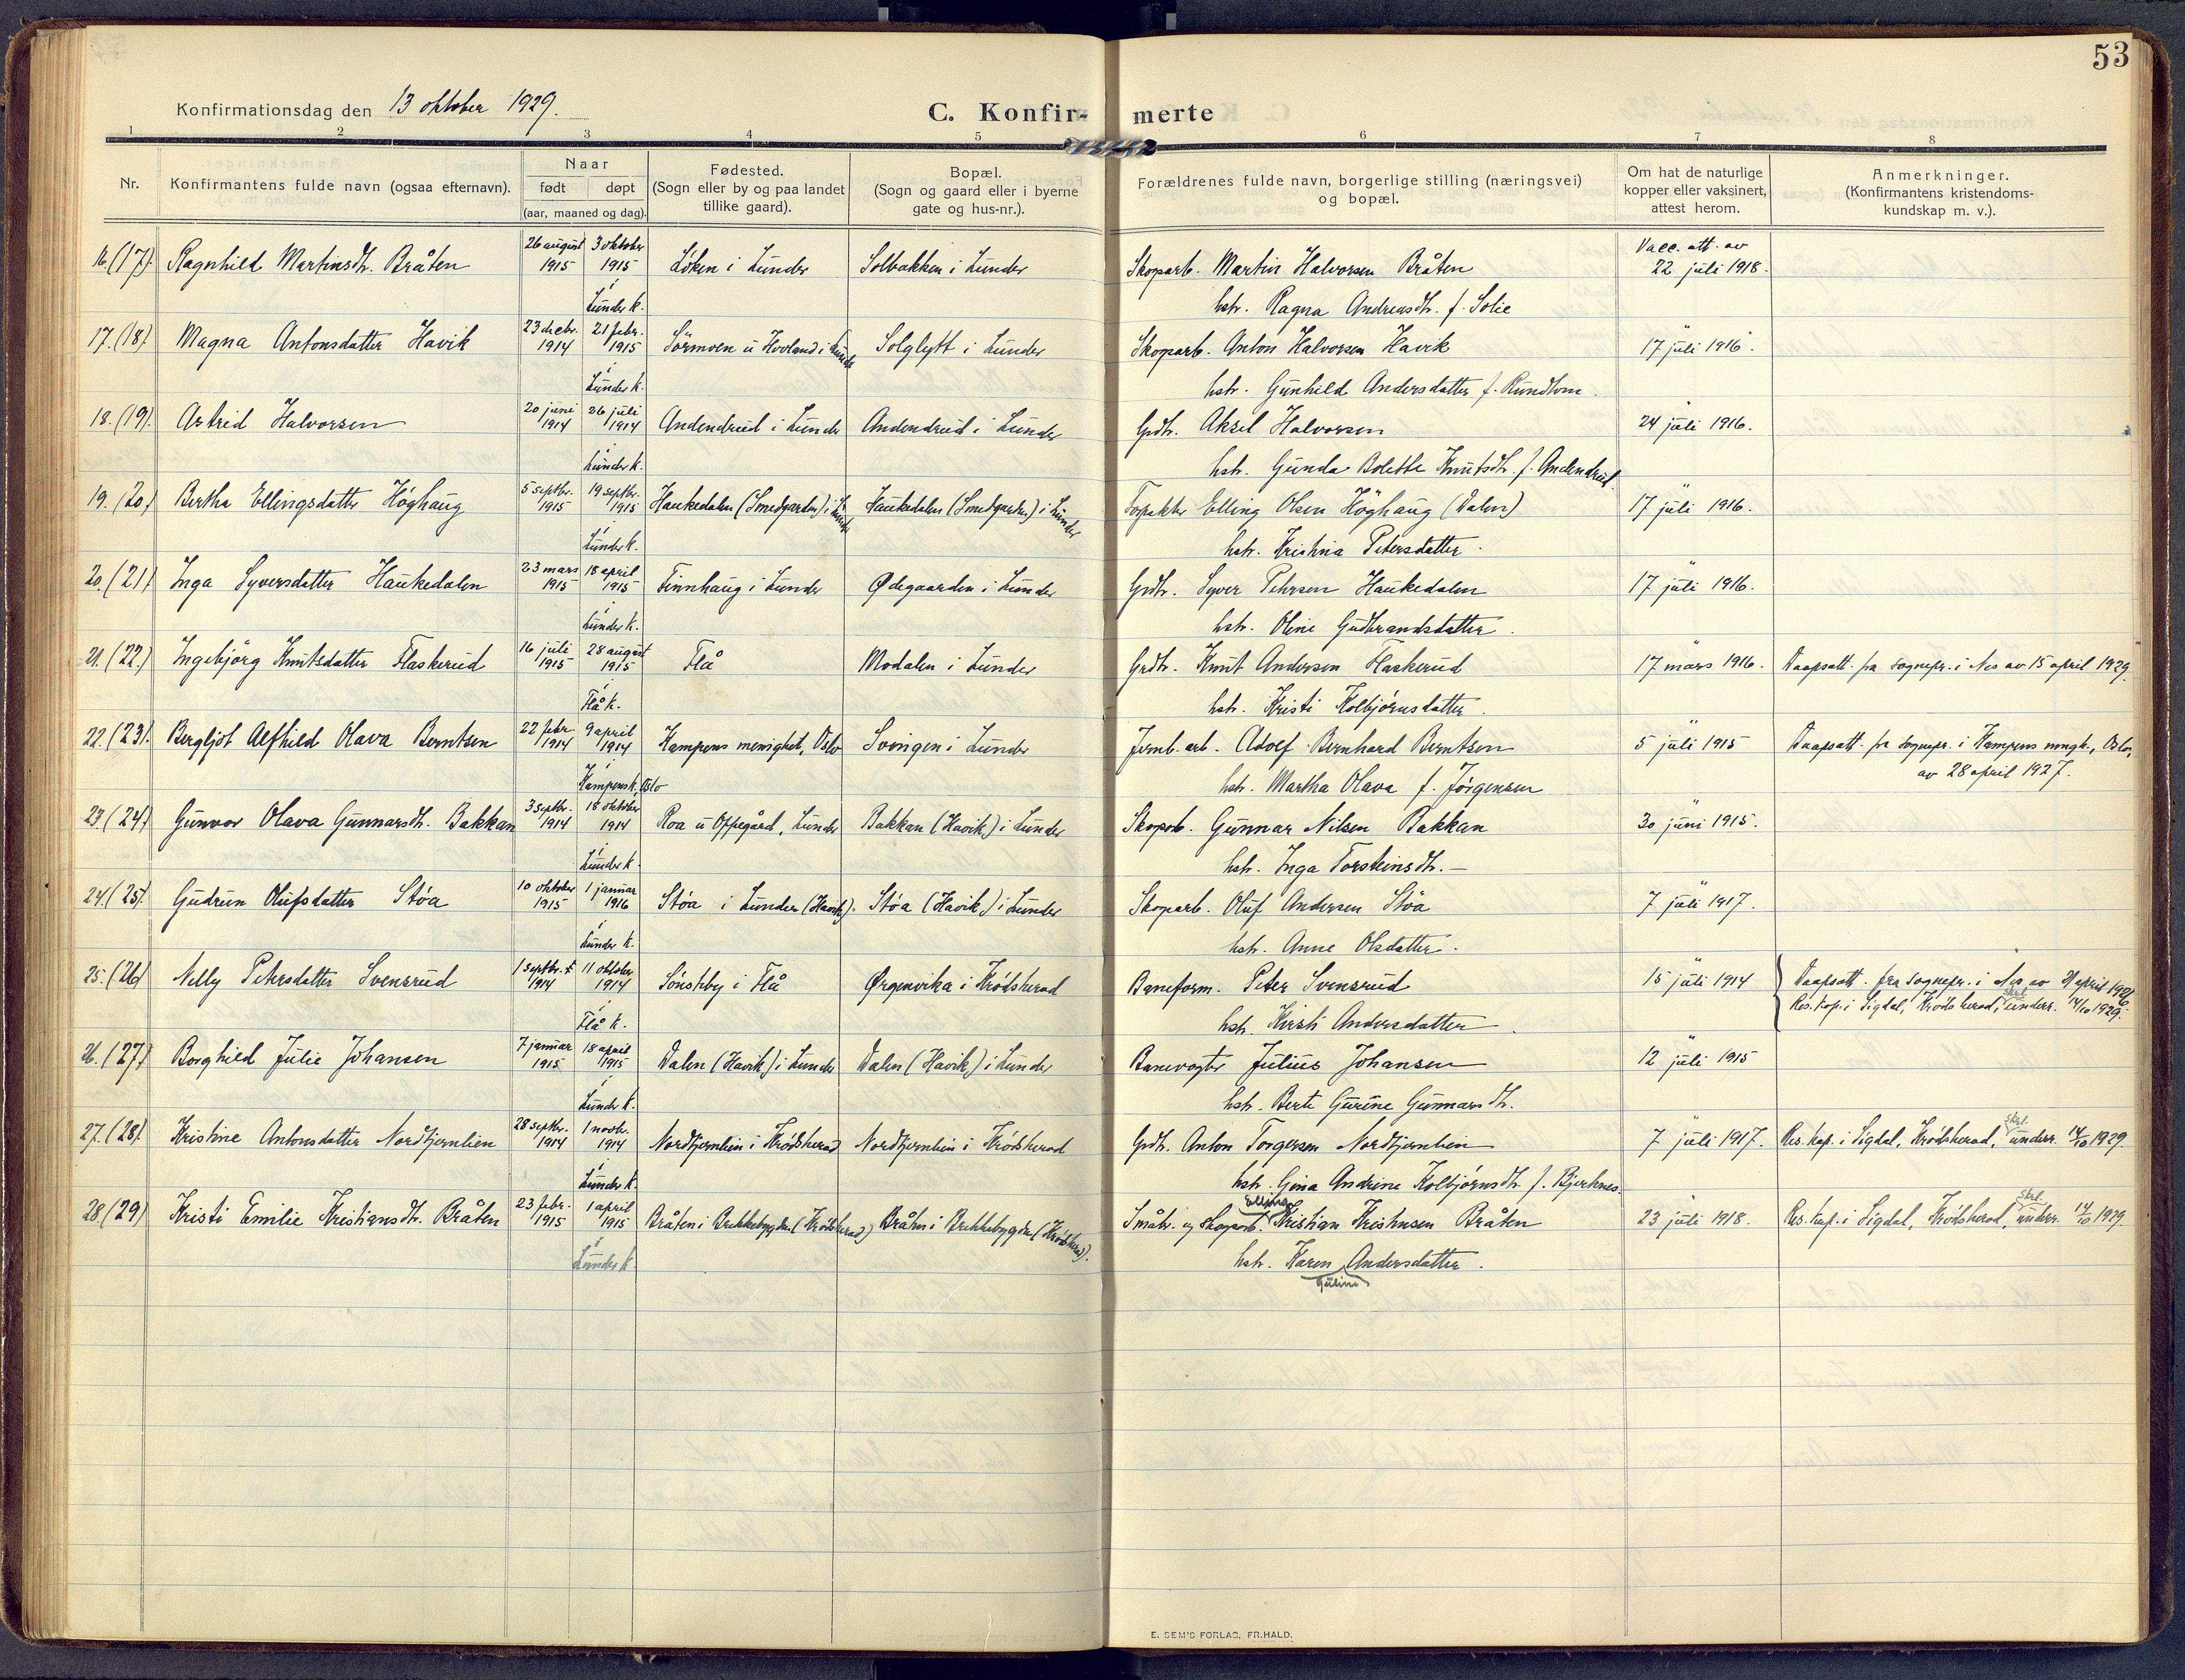 53
Konfirmationsdag den 13 oktober 1929.
C. Konfir- merte
1 2 3 4 5 6 7 8
Nr.
Konfirmantens fulde navn (ogsaa efternavn).
Naar
født døpt
(aar, maaned og dag).
Fødested.
(Sogn eller by og paa landet
tillike gaard).
Bopæl.
(Sogn og gaard eller i byerne
gate og hus-nr.).
Forældrenes fulde navn, borgerlige stilling (næringsvei)
og bopæl.
Om hat de naturlige
kopper eller vaksinert,
attest herom.
Anmerkninger.
(Konfirmantens kristendoms-
kundskap m. v.).
16. (17). Ragnhild Martinsdtr. Bråten 26 august 1915 3 oktober 1915 i Lunder k. Løken i Lunder Solbakken i Lunder Skogarb. Martin Halvorsen Bråten Vacc. att. av 22 juli 1918.
hstr. Ragna Andreasdtr. f. Solie
17. (18). Magna Antonsdatter Havik 23 decbr. 1914 21 febr. 1915 i Lunder k. Sörmoen u Hovland i Lunder Solglytt i Lunder Skogarb. Anton Halvorsen Havik " 17 juli 1916.
hstr. Gunhild Andersdatter f. Rundtom.
18. (19). Astrid Halvorsen 20 juni 1914 26 juli 1914 i Lunder k. Andendrud i Lunder Andendrud i Lunder Grdbr. Aksel Halvorsen " 24 juli 1916.
hstr. Gunda Bolette Knutsdtr. f. Andendrud.
19. (20.) Bertha Ellingsdatter Høghaug 5 septbr. 1915 19 septbr. 1915 i Lunder k. Haukedalen (Smedgarden) i Lunder Haukedalen (Smedgarden) i Lunder Forpakter Elling Olsen Höghaug (Dalen) " 17 juli 1916.
hstr. Kristina Petersdatter.
20. (21.) Inga Syversdatter Haukedalen 23 mars 1915 18 april 1915 i Lunder k. Finnhaug i Lunder Ødegaarden i Lunder Grdbr. Syver Pehrsen Haukedalen " 17 juli 1916.
hstr. Oline Gudbrandsdatter.
21. (22.) Ingebjörg Knutsdatter Flaskerud 16 juli 1915 28 august 1915 i Flå k. Flå Modalen i Lunder Grdbr. Knut Andersen Flaskerud " 17 mars 1916. Daapsatt. fra sognepr. i Nes av 15 april 1929.
hstr. Kristi Kolbjørnsdatter.
22. (23). Bergljot Alfhild Olava Berntsen 22 febr. 1914 9 april 1914 i Kampens k, Oslo Kampens menighet, Oslo Svingen i Lunder Jernb. arb. Adolf Bernhard Berntsen " 5 juli 1915 Daapsatt. fra sognepr. i Kampens mngh., Oslo,
av 28 april 1927.
hstr. Martha Olava f. Jørgensen
23. (24.) Gunvor Olava Gunnarsdtr. Bakkan 3 septbr. 1914 18 oktober 1914 i Lunder k. Roa u Oppegård, Lunder Bakkan (Havik) i Lunder Skogarb. Gunnar Nilsen Bakkan " 30 juni 1915.
hstr. Inga Torsteinsdtr. —
24. (25). Gudrun Olufsdatter Støa 10 oktober 1915 1 januar 1916 i Lunder k. Støa i Lunder (Havik). Støa (Havik) i Lunder Skogarb. Oluf Andersen Støa " 7 juli 1917.
hstr. Anne Olsdatter.
25. (26) Nelly Petersdatter Svensrud 1 septbr. 1914 11 oktober 1914 i Flå k. Sønsteby i Flå Ørgenvika i Krødsherad Baneform. Peter Svensrud " 15 juli 1914 Daapsatt. fra sognepr. i Nes av 21 april 1928
Res. kap. i Sigdal, Krødsherad, skrl. underr. 14/10 1929.
hstr. Kirsti Andersdatter.
26. (27.) Borghild Julie Johansen 7 januar 1915 18 april 1915 i Lunder k. Dalen (Havik) i Lunder Dalen (Havik) i Lunder Banevogter Julius Johansen " 12 juli 1915
hstr. Berte Gurine Gunnarsdtr.
27. (28). Kristine Antonsdatter Nordtjernlien 28 septbr. 1914 1 novbr. 1914 i Lunder k. Nordtjernlien i Krødsherad Nordtjernlien i Krødsherad Grdbr. Anton Torgersen Nordtjernlien " 7 juli 1917. Res. kap. i Sigdal, Krødsherad, skrl. underr. 14/10 1929.
hstr. Gina Andrine Kolbjørnsdtr. f. Bjerknes.
28. (29) Kristi Emilie Kristiansdtr. Bråten 23 febr. 1915 1 april 1915 i Lunder k. Bråten i Bekkebygden (Krødsherad) Bråten i Bekkebygden (Krødsherad). Småbr. og Skogarb. Elling Kristian Kristensen Bråten " 23 juli 1918. Res. kap. i Sigdal, Krødsherad, skrl. underr. 14/10 1929
hstr. Karen Guline Andersdatter.
E. SEM'S FORLAG, FR.HALD.